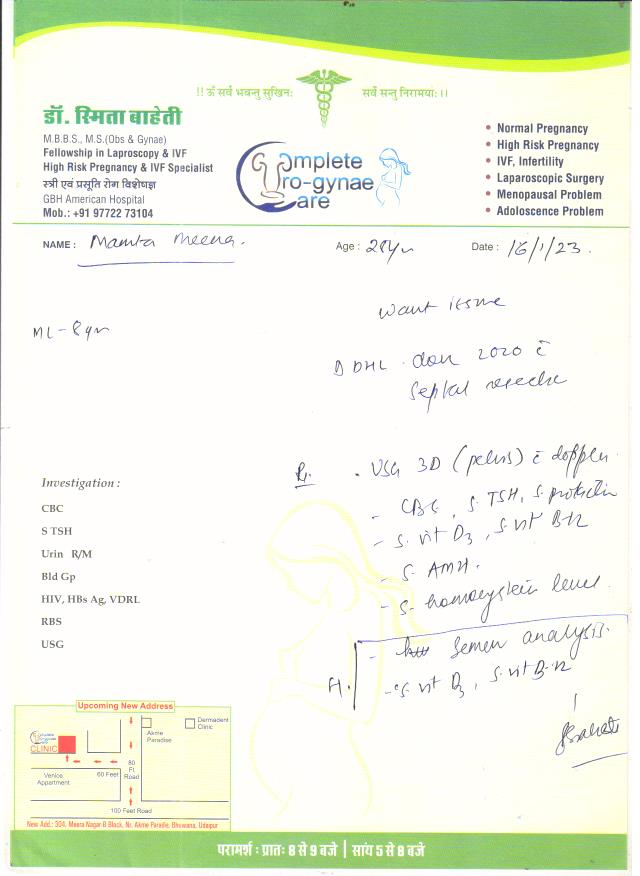 !! ॐ सर्वे भवन्तु सुखिनः सर्वे सन्तु निरामयाः।।
डॉ. स्मिता बाहेती
M.B.B.S., M.S.(Obs & Gynae)
Fellowship in Laproscopy & IVF
High Risk Pregnancy & IVF Specialist
स्त्री एवं प्रसूति रोग विशेषज्ञ
GBH American Hospital
Mob.: +91 97722 73104
Complete
Uro-gynae
Care
• Normal Pregnancy
• High Risk Pregnancy
• IVF, Infertility
• Laparoscopic Surgery
• Menopausal Problem
• Adoloscence Problem
NAME : Mamta Meena. Age : 28yr Date : 16/1/23.
want issue
ML - 8yr
DHL done 2020 c̄
Septal
Rx
- USG 3D (pelvis) c̄ doppler
- CBC, S. TSH, S. prolactin
- S. vit D3, S. vit B-12
- S. AMH.
- S- homocystein level.
- Semen analysis.
H.
- S. vit D3, S. vit B-12
Investigation :
CBC
S TSH
Urin R/M
Bld Gp
HIV, HBs Ag, VDRL
RBS
USG
Upcoming New Address
Complete Uro-gynae Care
CLINIC
Akme Paradise
Dermadent Clinic
Venice Appartment
60 Feet
80 Ft. Road
100 Feet Road
New Add.: 304, Meera Nagar-B Block, Nr. Akme Paradie, Bhuwana, Udaipur
परामर्श : प्रातः 8 से 9 बजे | सांय 5 से 8 बजे